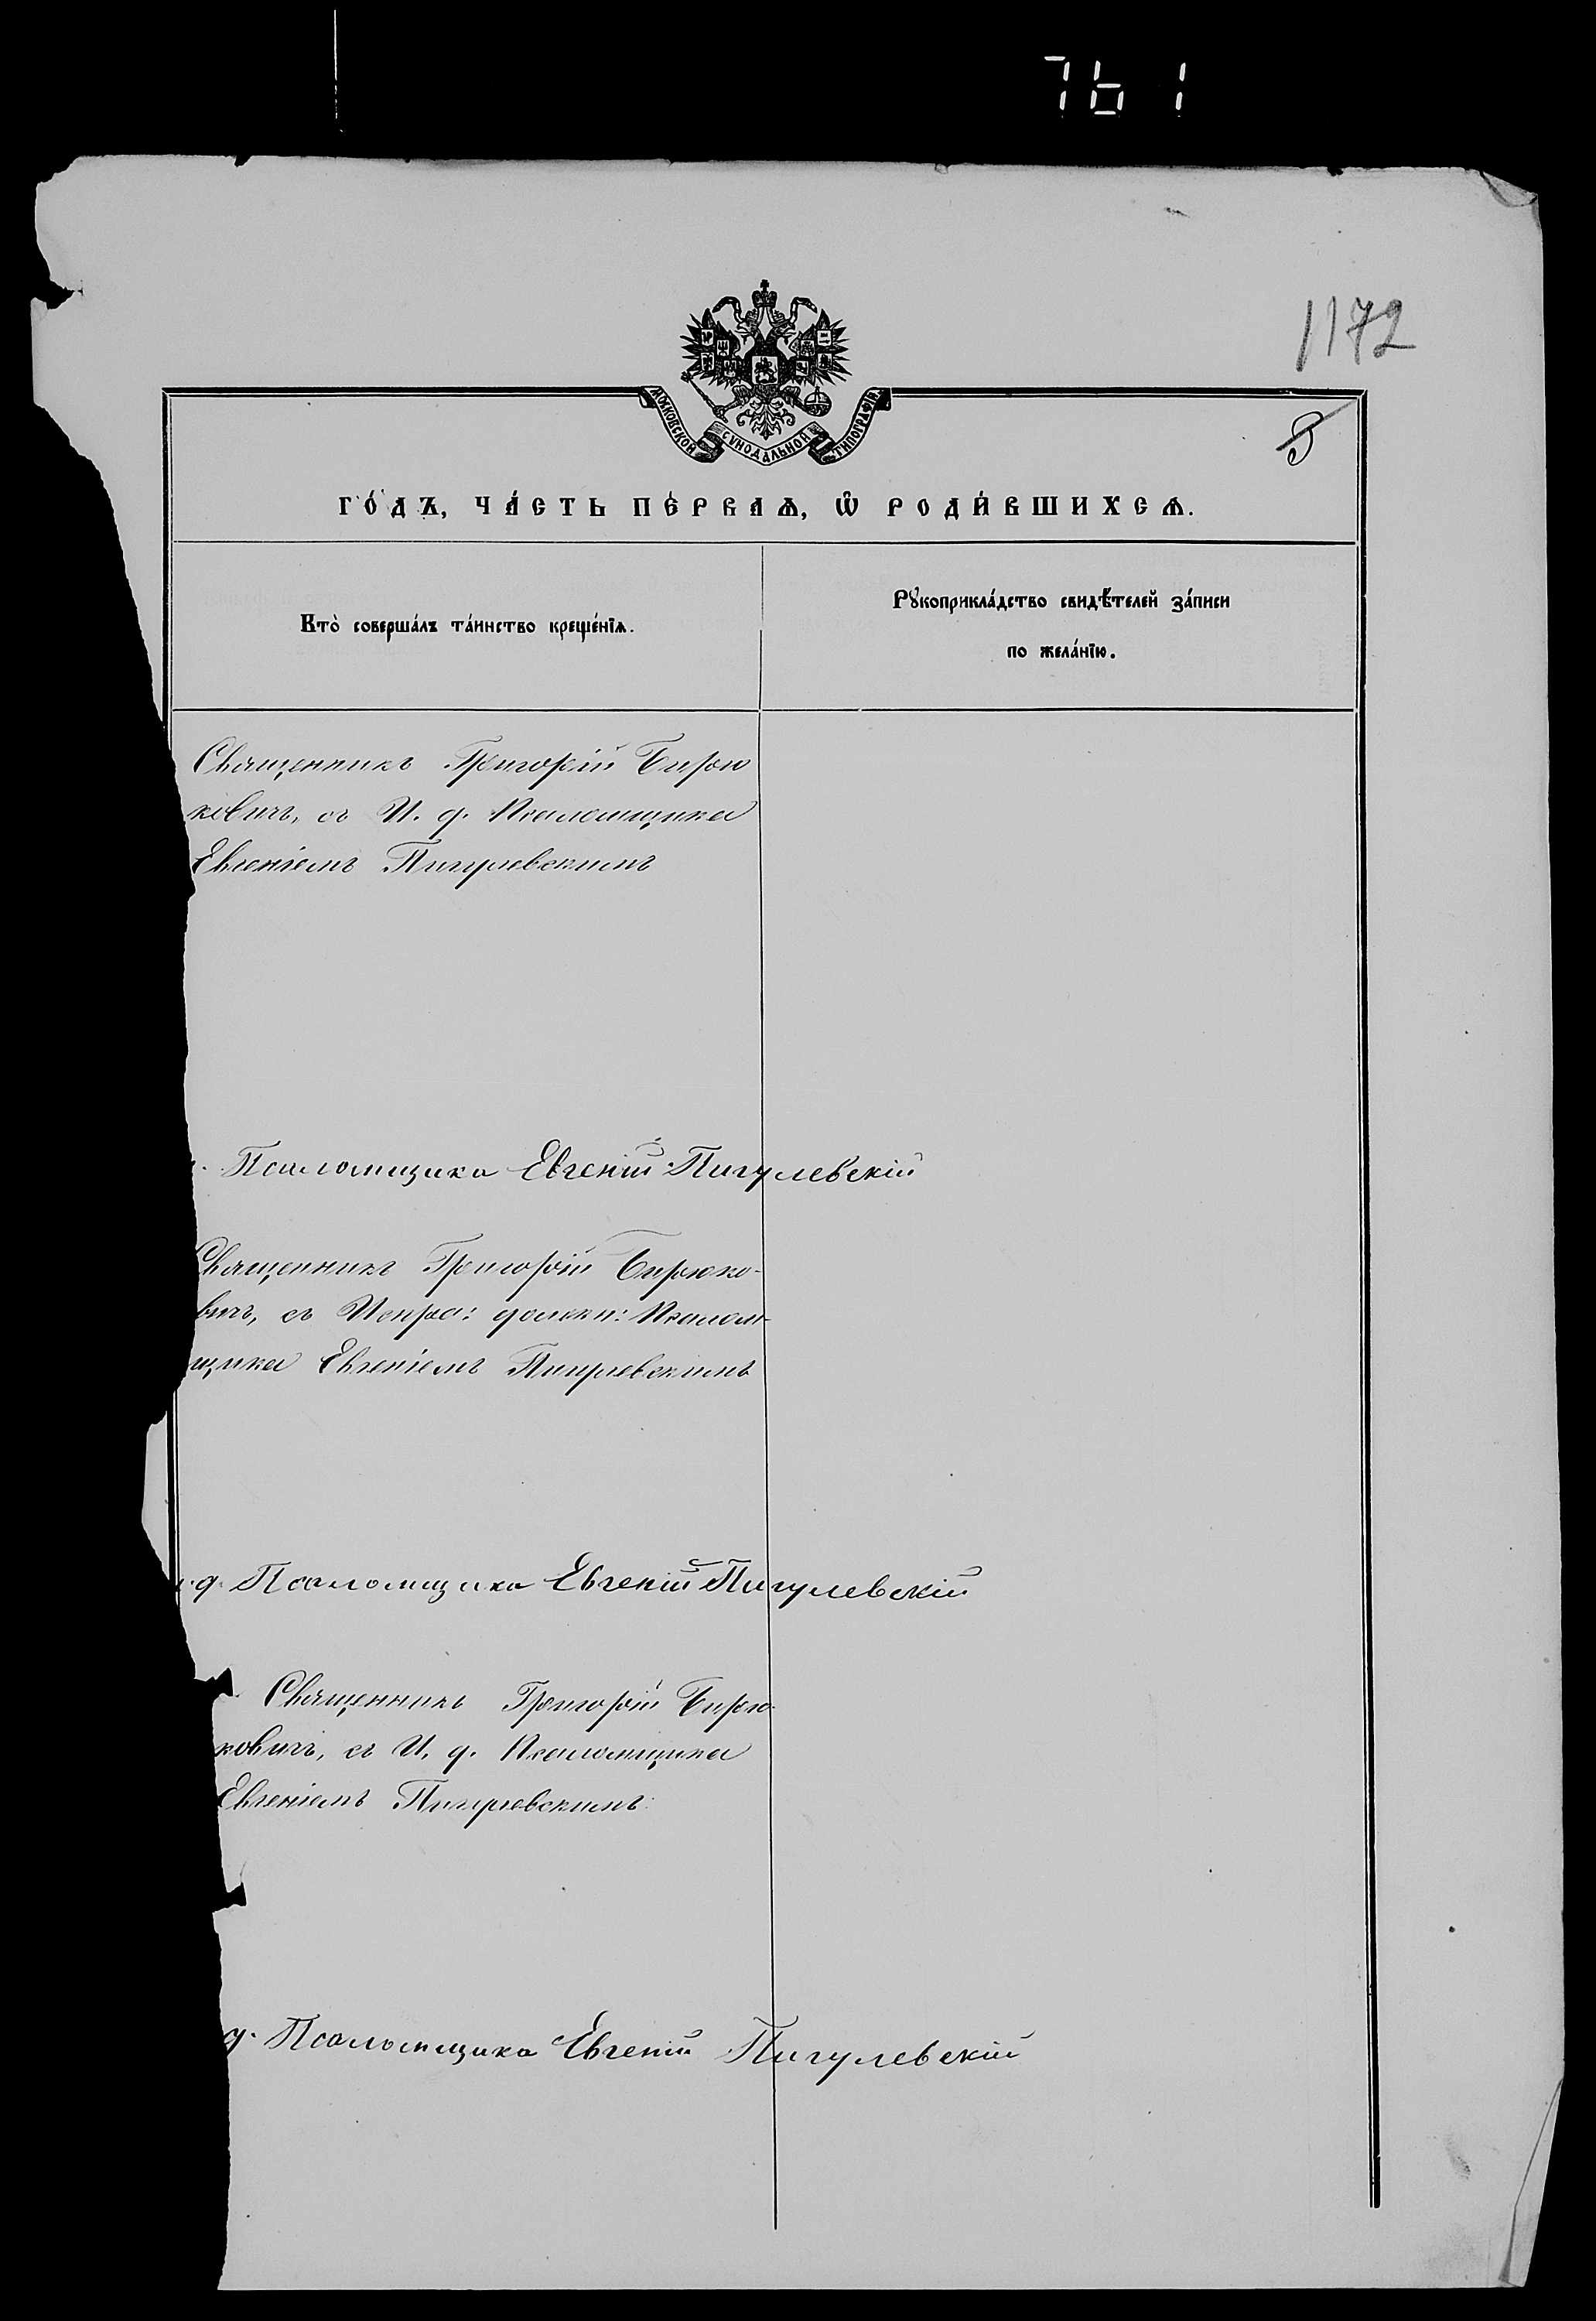 761
1172
МОСКОВСКОЙ СУНОДАЛЬНОЙ ТИПОГРАФІИ
5
го́дъ, ча́сть пе́рваѧ, ѡ҆ роди́вшихсѧ.
Кто̀ соверша́лъ та́инство креще́нїѧ.
Рꙋкоприкла́дство свидѣ́телей за́писи
по жела́нїю.
Священникъ Григорій Бирю
ковичъ, съ И. д. Псаломщика
Евгеніемъ Пигулевскимъ
Псаломщика Евгеній Пигулевскій
Священникъ Григорій Бирюко-
вичъ, съ Испра: должн: Псалом-
щика Евгеніемъ Пигулевскимъ
д. Псаломщика Евгеній Пигулевскій
Священникъ Григорій Бирю-
ковичъ, съ И. д. Псаломщика
Евгеніемъ Пигулевскимъ
д. Псаломщика Евгеній Пигулевскій